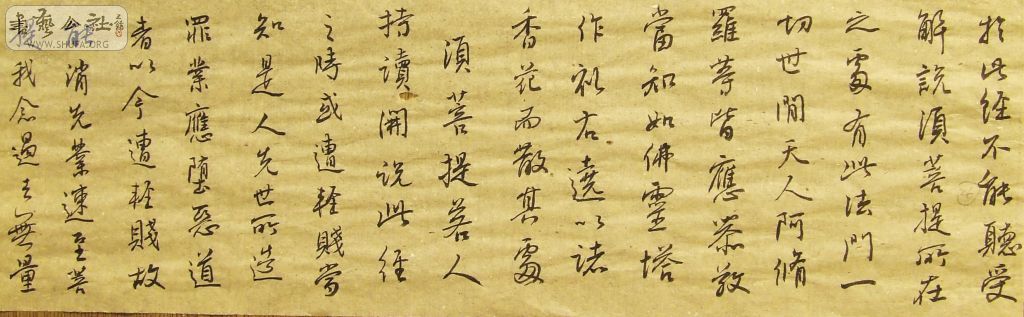 於此經不能聽受
解說須菩提所在
之處有此法門一
切世間天人阿脩
羅等皆應恭敬
當知如佛靈塔
作礼右遶以諸
香花而散其處
須菩提若人
持讀開說此經
之時或遭輕賤當
知是人先世所造
罪業應墮惡道
者以今遭輕賤故
能消先業速至菩
提我念過去無量
書藝公社
WWW.SHUFA.ORG